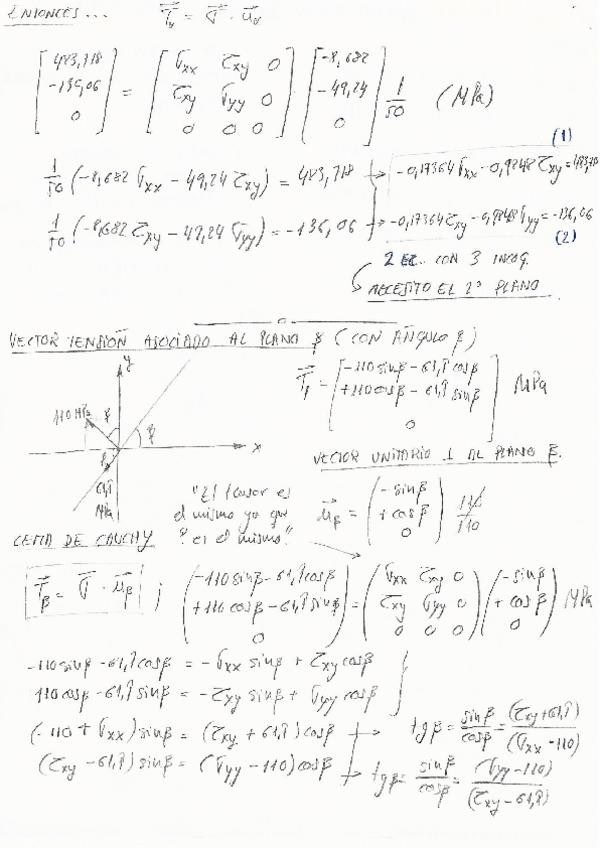 ENTONCES... T⃗α = σ̿ · u⃗α
[483,718 -136,06 0] = [σxx τxy 0 τxy σyy 0 0 0 0] [-8,682 -49,24 0] 1/50 (MPa)
(1)
1/50 (-8,682 σxx - 49,24 τxy) = 483,718 → -0,17364 σxx - 0,9848 τxy = 483,718
1/50 (-8,682 τxy - 49,24 σyy) = -136,06 → -0,17364 τxy - 0,9848 σyy = -136,06
(2)
2 EC. CON 3 INCOG.
NECESITO EL 2º PLANO
VECTOR TENSIÓN ASOCIADO AL PLANO β (CON ÁNGULO β)
y
110 MPa β β x
β
MPa
= [-110 sinβ - 61,8 cosβ +110 cosβ - 61,8 sinβ 0] MPa
VECTOR UNITARIO ⊥ AL PLANO β.
"El tensor es
el mismo ya que
P es el mismo."
u⃗β = (-sinβ +cosβ 0) 110/110
LEMA DE CAUCHY
T⃗β = σ̿ · u⃗β ; (-110 sinβ - 61,8 cosβ +110 cosβ - 61,8 sinβ 0) = (σxx τxy 0 τxy σyy 0 0 0 0) (-sinβ +cosβ 0) MPa
-110 sinβ - 61,8 cosβ = -σxx sinβ + τxy cosβ
110 cosβ - 61,8 sinβ = -τxy sinβ + σyy cosβ
(-110 + σxx) sinβ = (τxy + 61,8) cosβ → tgβ = sinβ/cosβ = (τxy + 61,8)/(σxx - 110)
(τxy - 61,8) sinβ = (σyy - 110) cosβ → tgβ = sinβ/cosβ = (σyy - 110)/(τxy - 61,8)